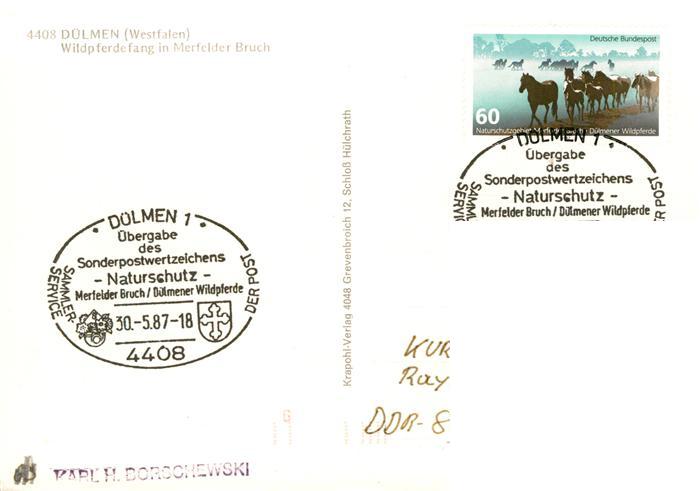 4408 DÜLMEN (Westfalen)
Wildpferdefang in Merfelder Bruch
Deutsche Bundespost
60
Naturschutzgebiet Merfelder Bruch · Dülmener Wildpferde
DÜLMEN 1
Übergabe
des
Sonderpostwertzeichens
- Naturschutz -
Merfelder Bruch / Dülmener Wildpferde
SAMMLER-
SERVICE
DER POST
DÜLMEN 1
Übergabe
des
Sonderpostwertzeichens
- Naturschutz -
Merfelder Bruch / Dülmener Wildpferde
SAMMLER-
SERVICE
DER POST
30.-5.87-18
4408
Krapohl-Verlag 4048 Grevenbroich 12, Schloß Hülchrath
KUR
Ray
DDR-8
KARL H. BORSCHEWSKI